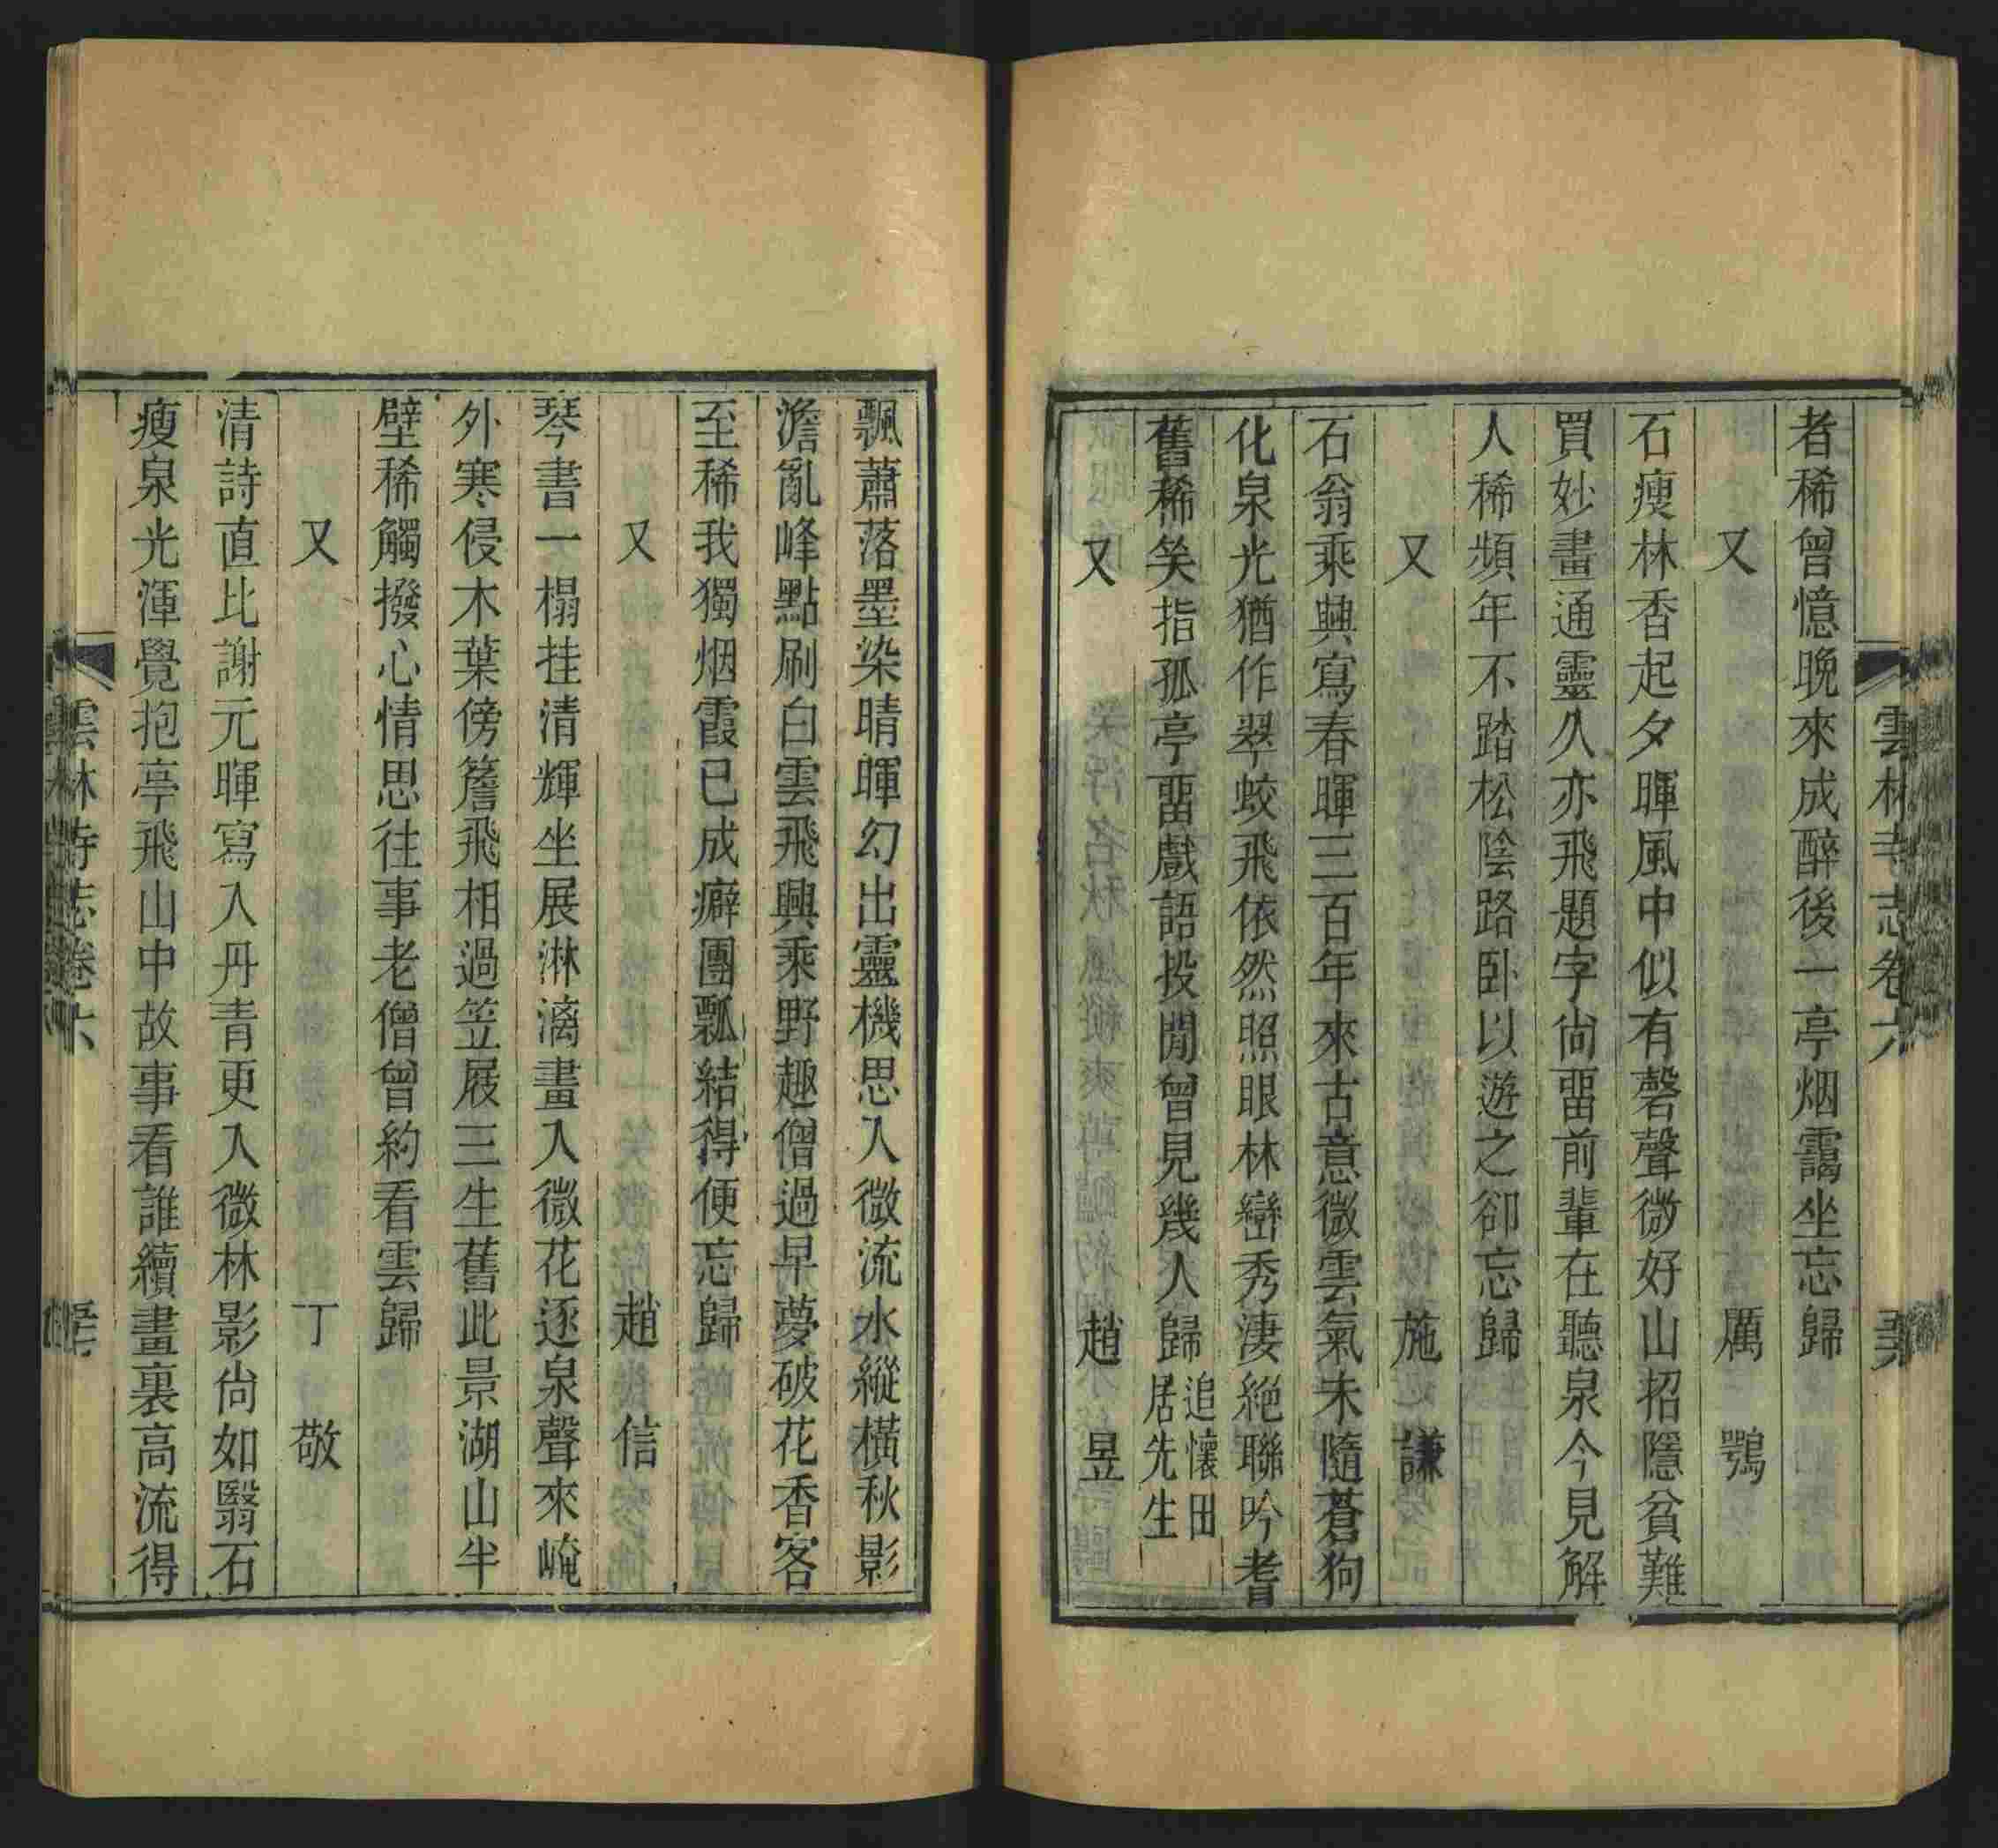 者稀曾憶晚來成醉後一亭烟靄坐忘歸
又 厲 鶚
石瘦林香起夕暉風中似有磬聲微好山招隱貧難
買妙畫通靈久亦飛題字尙畱前輩在聽泉今見解
人稀頻年不踏松陰路卧以遊之卻忘歸
又 施 謙
石翁乘興寫春暉三百年來古意微雲氣未隨蒼狗
化泉光猶作翠蛟飛依然照眼林巒秀淒絶聯吟耆
舊稀笑指孤亭畱戲語投閒曾見幾人歸追懷田居先生
又 趙 昱
雲林寺志卷六
飄蕭落墨染晴暉幻出靈機思入微流水縱橫秋影
澹亂峰點刷白雲飛興乘野趣僧過早夢破花香客
至稀我獨烟霞已成癖團瓢結得便忘歸
又 趙 信
琴書一榻挂清輝坐展淋漓畫入微花逐泉聲來崦
外寒侵木葉傍簷飛相過笠屐三生舊此景湖山半
壁稀觸撥心情思往事老僧曾約看雲歸
又 丁 敬
清詩直比謝元暉寫入丹青更入微林影尙如翳石
瘦泉光渾覺抱亭飛山中故事看誰續畫裏高流得
雲林寺志卷六